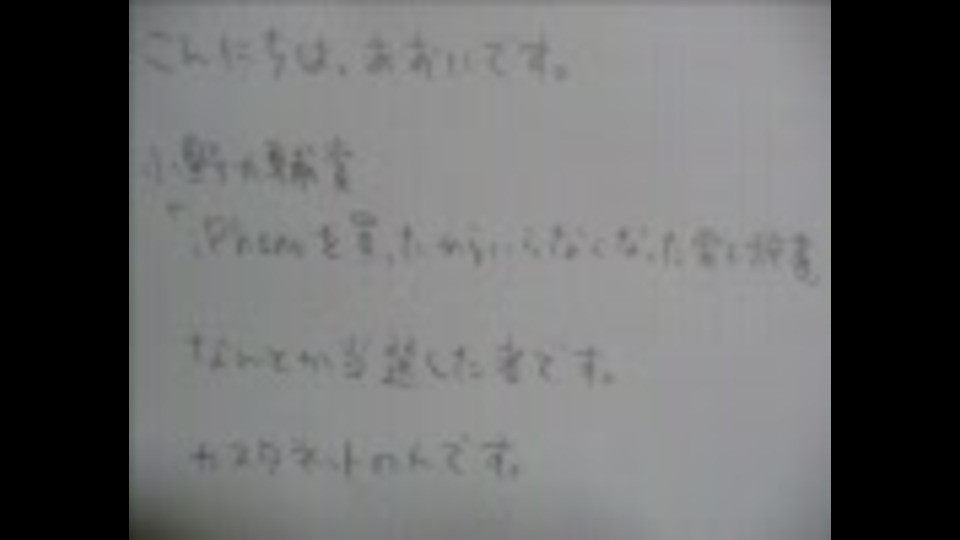 こんにちは、あおいです。
小野大輔賞
「iPhoneを買ったからいらなくなった電子辞書」
なんとか当選した者です。
カスタネットの人です。